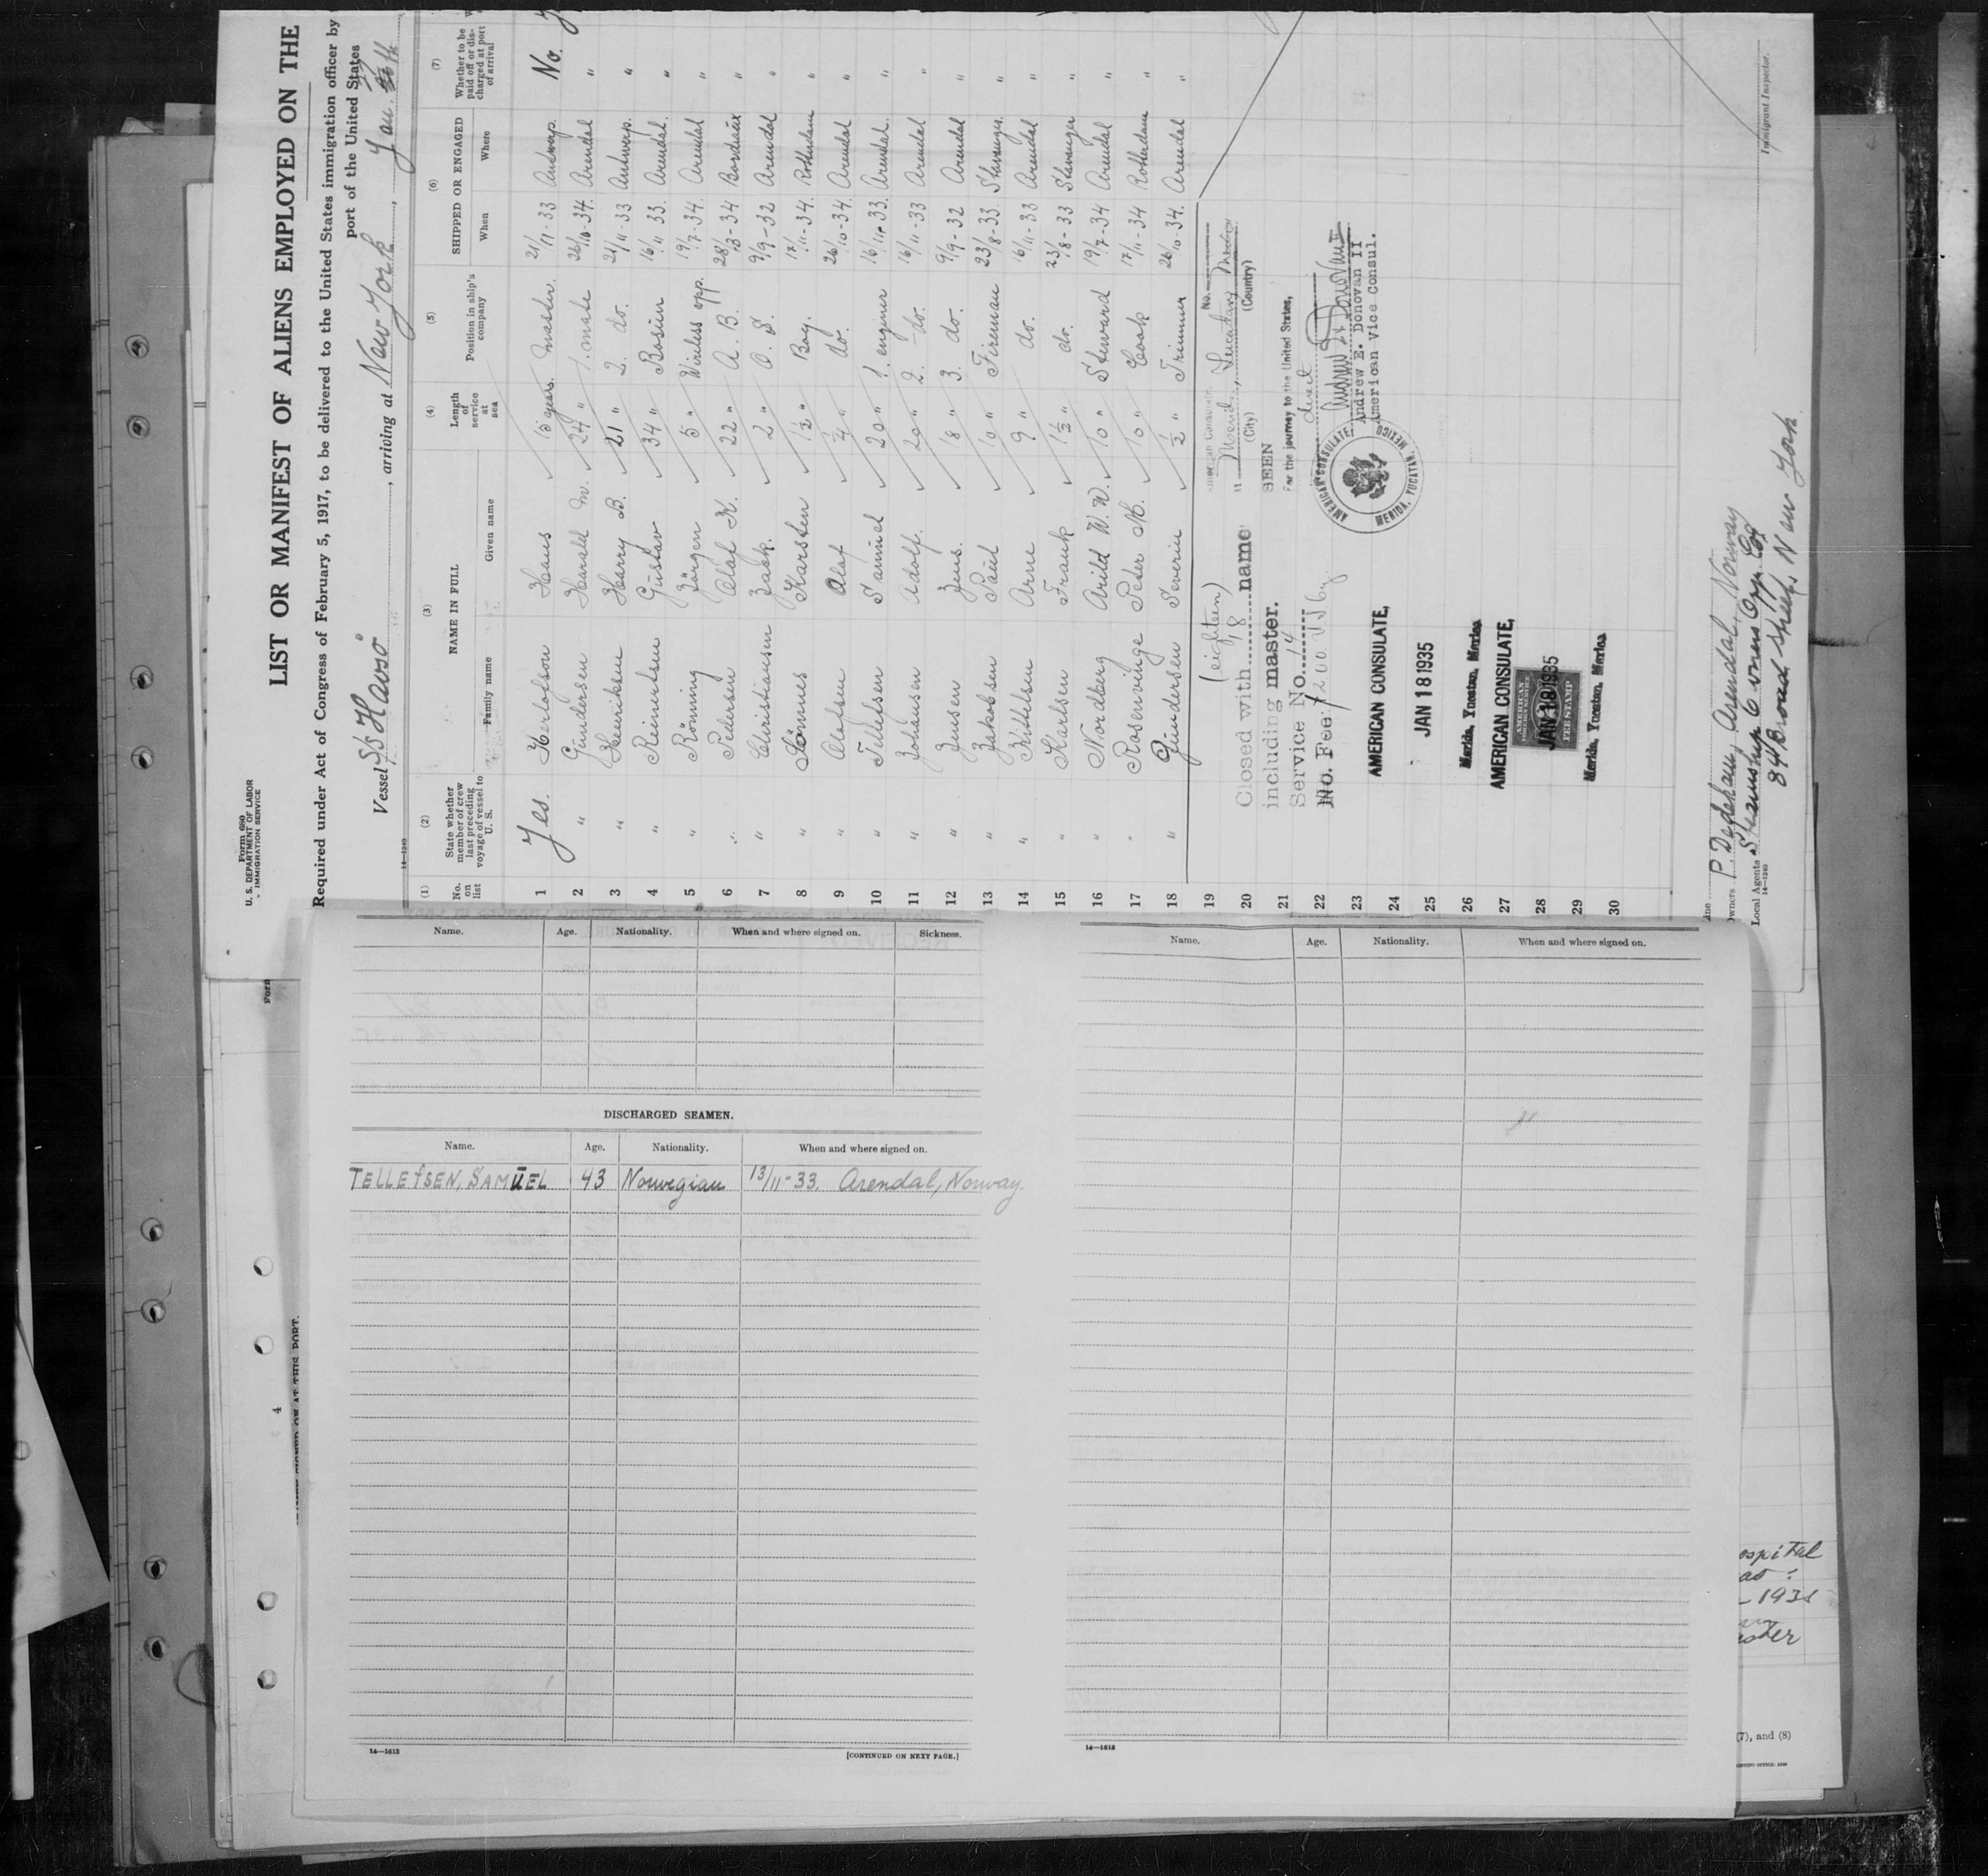 Form 680
U. S. DEPARTMENT OF LABOR
IMMIGRATION SERVICE
LIST OR MANIFEST OF ALIENS EMPLOYED ON THE
Required under Act of Congress of February 5, 1917, to be delivered to the United States immigration officer by
port of the United States
Vessel SS Havsö, arriving at New York, Jan.
14—1240
(1) (2) (3) (4) (5) (6) (7)
No. on list
State whether member of crew last preceding voyage of vessel to U. S.
NAME IN FULL
Family name Given name
Length of service at sea
Position in ship's company
SHIPPED OR ENGAGED
When Where
Whether to be paid off or discharged at port of arrival
1 Yes. Herlofson Hans 15 years. Master. 21/11-33 Antwerp. No.
2 " Gundersen Harald M. 24 " 1. mate 26/10-34. Arendal "
3 " Henriksen Harry B. 21 " 2. do. 21/11-33 Antwerp. "
4 " Reinertsen Gustav 34 " Bosun 16/11-33. Arendal. "
5 " Rönning Jörgen 5 " Wireless opp. 19/7-34. Arendal "
6 " Pedersen Olaf K. 22 " A. B. 28/3-34 Bordaux "
7 " Christiansen Isack. 2 " O. S. 9/9-32 Arendal "
8 " Lönnes Karsten 1½ " Boy. 17/11-34. Rotterdam "
9 " Olafsen Olaf ¼ " do. 26/10-34. Arendal "
10 " Tellefsen Samuel 20 " 1. enginer 16/11-33. Arendal. "
11 " Johansen Adolf. 20 " 2. do. 16/11-33 Arendal "
12 " Jensen Jens. 18 " 3. do. 9/9-32 Arendal "
13 " Jakobsen Paul 10 " Fireman 23/8-33. Stavanger. "
14 " Kittelsen Arne 9 " do. 16/11-33 Arendal "
15 " Karlsen Frank 1½ " do. 23/8-33 Stavanger "
16 " Nordberg Arild W. W. 10 " Steward 19/7-34 Arendal "
17 " Rosenvinge Peter M. 10 " Cook 17/11-34 Rotterdam "
18 " Gundersen Severin ½ " Trimmer 26/10-34. Arendal "
19
20
21
22
23
24
25
26
27
28
29
30
(eighteen)
Closed with 18 name
including master.
Service No. 14
No. Fee
American Consulate. No.
Merida, Yucatan, Mexico
(City) (Country)
SEEN
For the journey to the United States,
direct
Andrew E. Donovan II
Andrew E. Donovan II
American Vice Consul.
AMERICAN CONSULATE, MERIDA, YUCATAN, MEXICO
AMERICAN CONSULATE,
JAN 18 1935
Merida, Yucatan, Mexico
AMERICAN CONSULATE,
AMERICAN
FEE STAMP
JAN 18 1935
Merida, Yucatan, Mexico
Owners P. Dedekam, Arendal, Norway
Local Agents Steamship
84 Broad Street, New York
14—1240
Immigrant Inspector.
Name. Age. Nationality. When and where signed on. Sickness.
DISCHARGED SEAMEN.
Name. Age. Nationality. When and where signed on.
TELLEfSEN, SAMUEL 43 Norwegian 13/11-33. Arendal, Norway.
14—1613
[CONTINUED ON NEXT PAGE.]
Name. Age. Nationality. When and where signed on.
14—1613
4
(7), and (8)